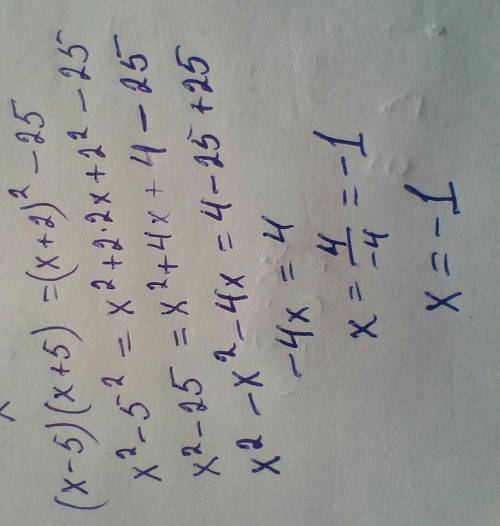 (x-5)(x+5) = (x+2)² - 25
x² - 5² = x² + 2·2x + 2² - 25
x² - 25 = x² + 4x + 4 - 25
x² - x² - 4x = 4 - 25 + 25
-4x = 4
x = 4/-4 = -1
x = -1